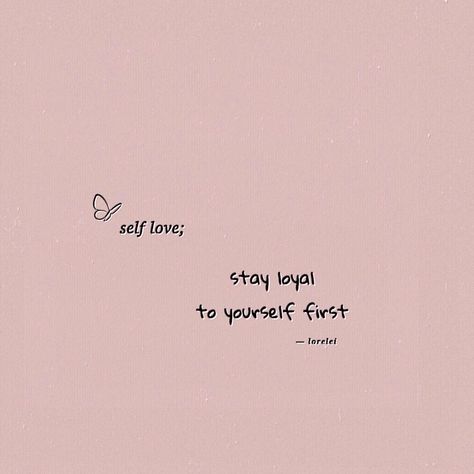 self love;
stay loyal
to yourself first
— lorelei